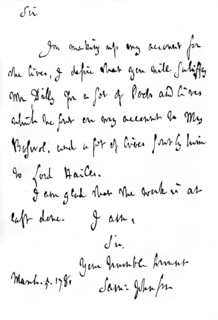 Sir
In making up my account for
the Lives, I desire that you will satisfy
Mr Dilly for a set of Poets and Lives
which he sent on my account to Mr
Boswel, and a set of Lives sent by him
to Lord Hailes.
I am glad that the work is at
last done. I am,
Sir,
Your humble servant
March. 5. 1781 Sam: Johnson